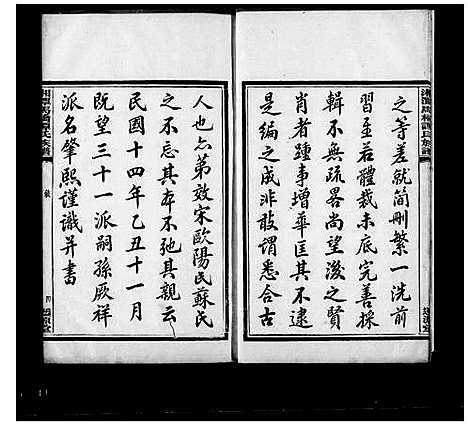 之等差就簡刪繁一洗前
習至若體裁未底完善採
輯不無疏畧尚望後之賢
肖者踵事增華匡其不逮
是編之成非敢謂悉合古
人也亦第效宋歐陽氏蘇氏
之不忘其本不弛其親云
民國十四年乙丑十一月
既望三十一派嗣孫厥祥
派名肇熙謹識并書
四